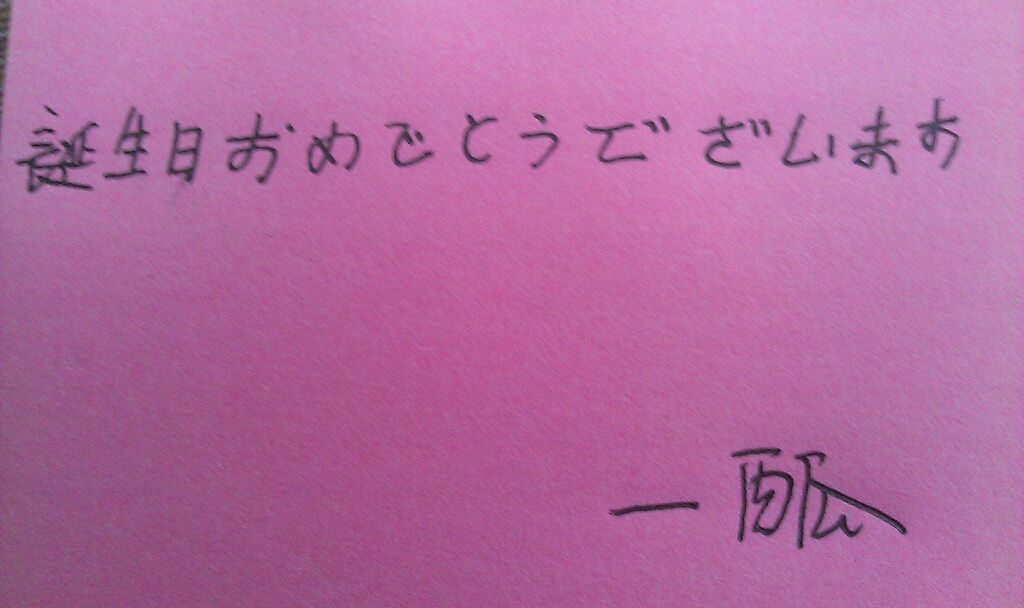 誕生日おめでとうございます